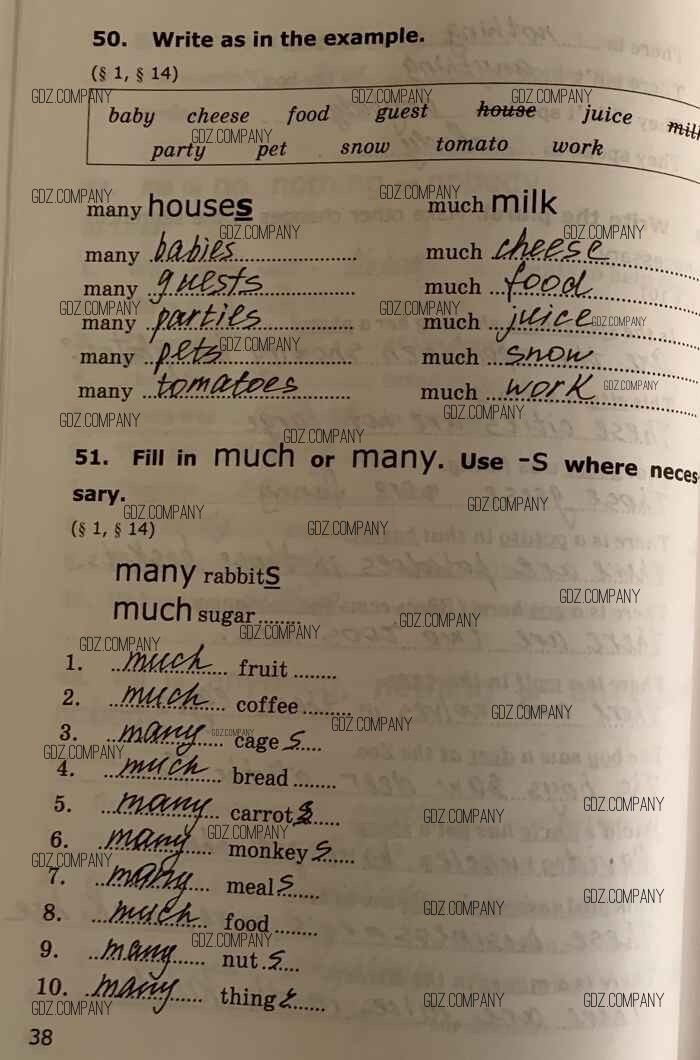 50. Write as in the example.
(§ 1, § 14)
baby cheese food guest house juice milk
party pet snow tomato work
many houses much milk
many babies much cheese
many guests much food
many parties much juice
many pets much snow
many tomatoes much work
51. Fill in much or many. Use -s where neces-
sary.
(§ 1, § 14)
many rabbits
much sugar........
1. much fruit ........
2. much coffee .........
3. many cage s....
4. much bread ........
5. many carrot s.....
6. many monkey s......
7. many meal s......
8. much food ........
9. many nut .s....
10. many thing s......
38
GDZ.COMPANY